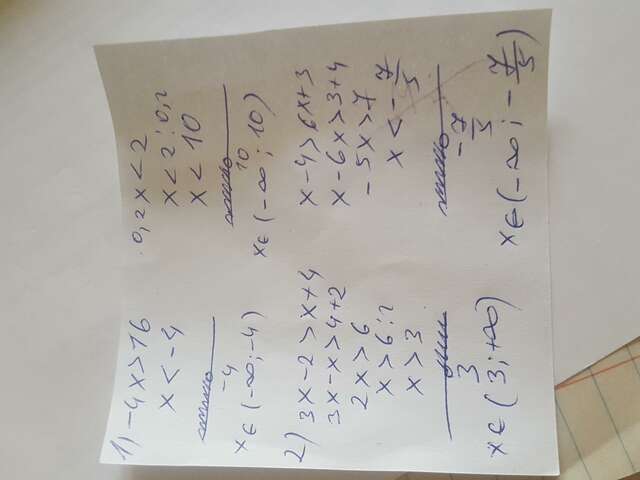 1) -4x>16
x<-4
-4
x∈(-∞;-4)
0,2x<2
x<2:0,2
x<10
10
x∈(-∞;10)
2) 3x-2>x+4
3x-x>4+2
2x>6
x>6:2
x>3
3
x∈(3;+∞)
x-4>6x+3
x-6x>3+4
-5x>7
x<-7/5
-7/5
x∈(-∞;-7/5)